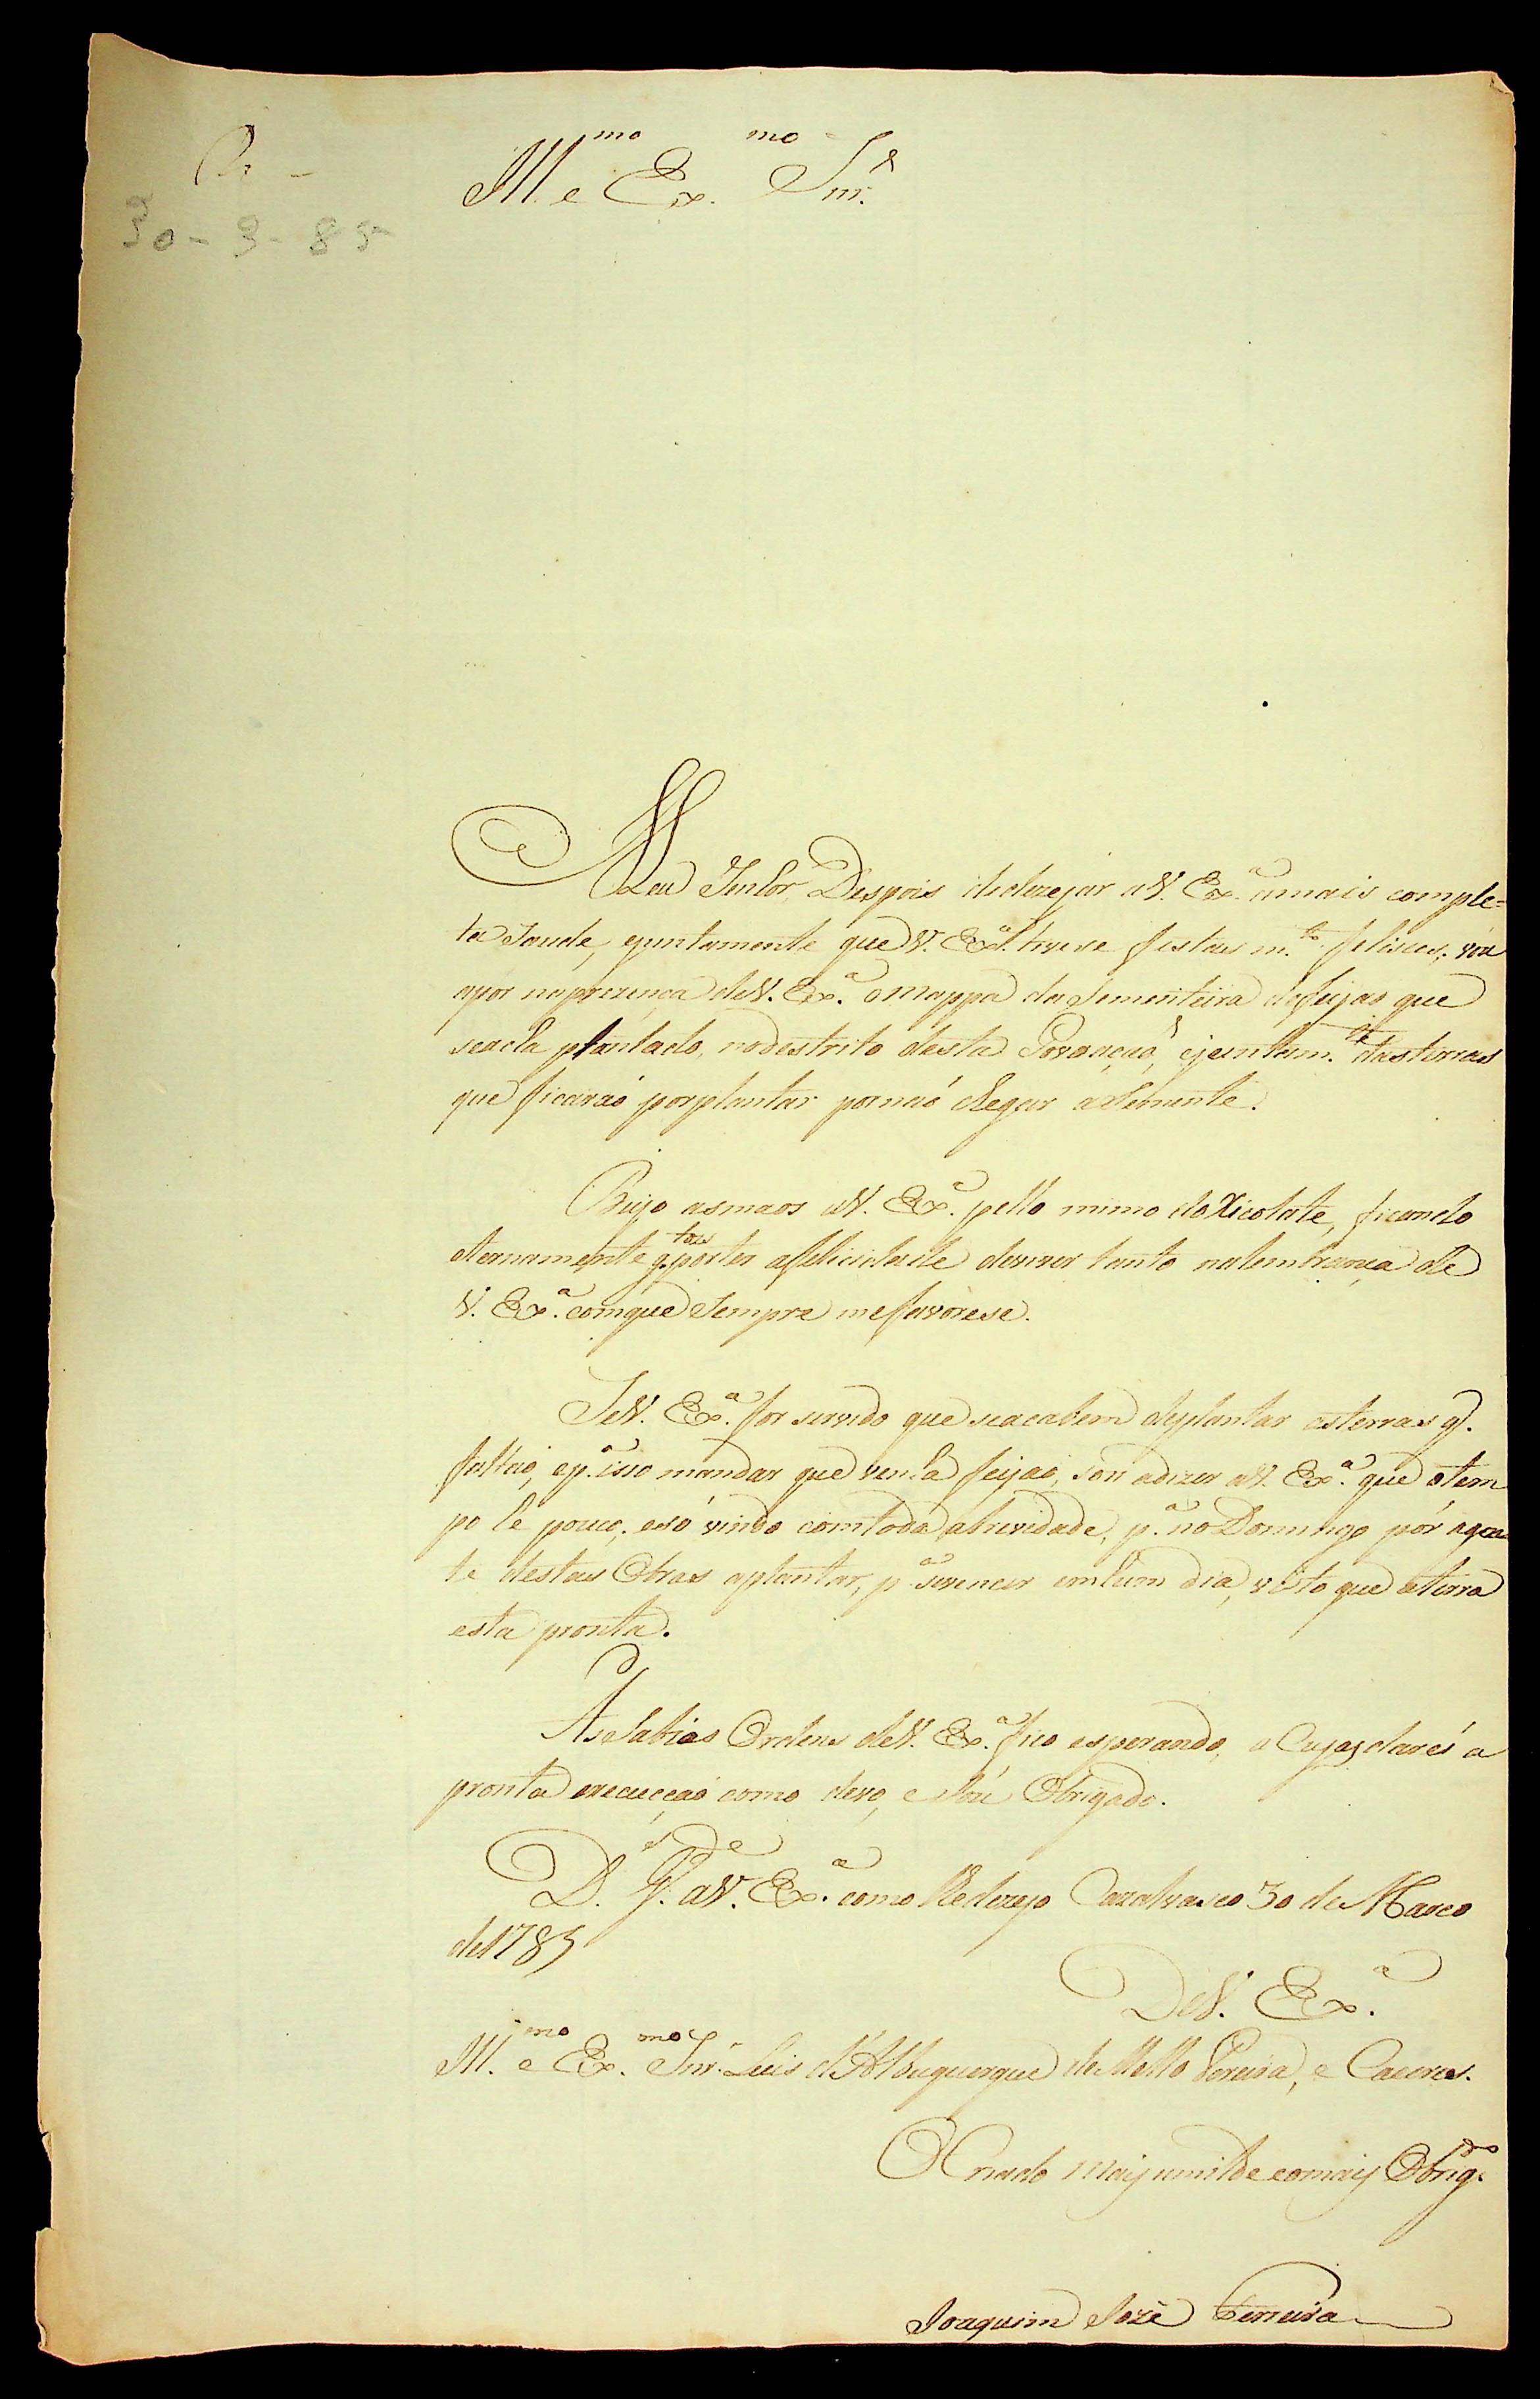 30-3-85
Ill.mo e Ex.mo Snr.
Meu Senhor Despois dedezejar aV. Ex.a amais comple=
ta Saude, ejuntamente que V. Ex.a tivese festas m.to felises; vou
apór naprezença deV. Ex.a oMappa da Sementeira defeijaó que
seacha plantado, nodestrito desta Povoaçaó, ejuntam.te dasterras
que ficaraó porplantar pornaó chegar aSemente.
Beijo asmaos aV. Ex.a pello mimo doXicolate, ficando
eternamente porter afelicidade deviver tanto nalembrança de
V. Ex.a comque Sempre mefavorese.
SeV. Ex.a for servido que seacabem deplantar asterras q.
faltaó, ep.a isso mandar que venha feijaó, sou adizer aV. Ex.a que otem
po he pouco, esó vindo comtoda abrevidade, p.a no Domingo pór agen
te destas Obras aplantar, p.a sevencer emhum dia, visto que aterra
esta pronta.
AsSabias Ordens deV. Ex.a fico esperando, a Cujas darei a
pronta execucçaó como devo, e Sou Obrigado.
D.s G.e aV. Ex.a como lhedezejo Cazalvasco 30 de Março
de1785
DeV. Ex.a
Ill.mo e Ex.mo Snr. Luis d'Albuquerque deMello Pereira, e Caceres.
OCriado Mais umilde eomais Obrig.do
Joaquim Jozé Ferreira